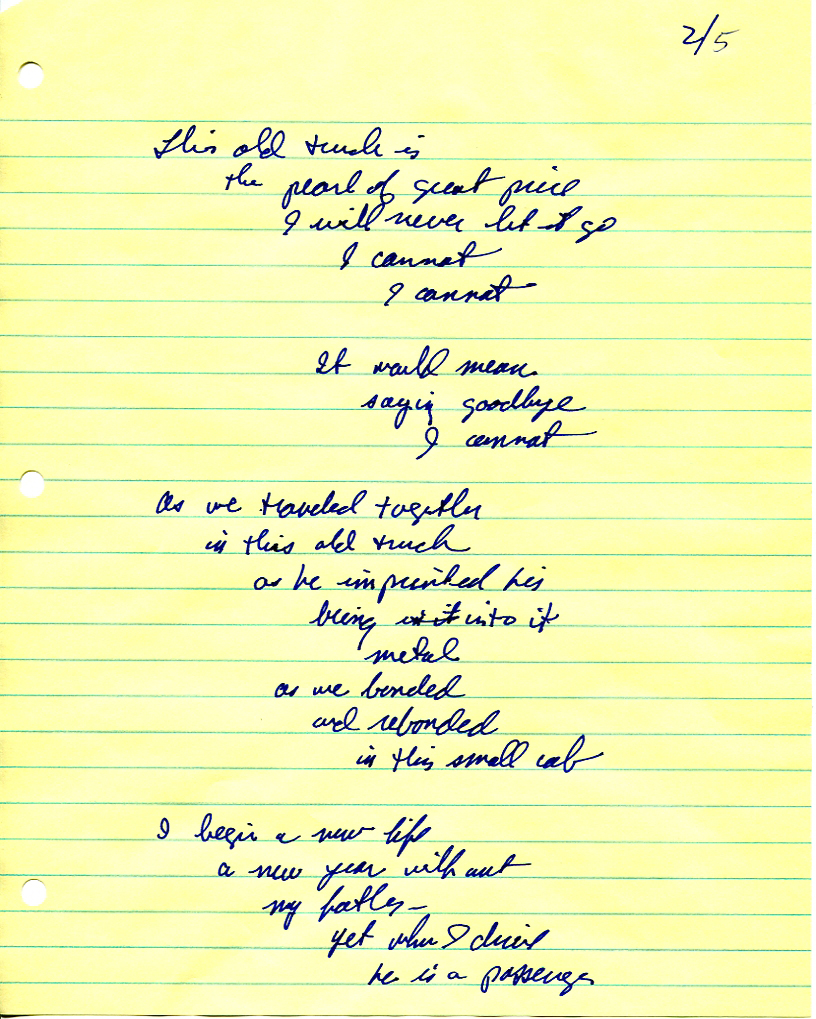 2/5
This old truck is
the pearl of great price
I will never let it go
I cannot
I cannot
It would mean
saying goodbye
I cannot
As we traveled together
in this old truck
as he imprinted his
being into it
metal
as we bonded
and rebonded
in this small cab
I begin a new life
a new year without
my father –
yet when I drive
he is a passenger